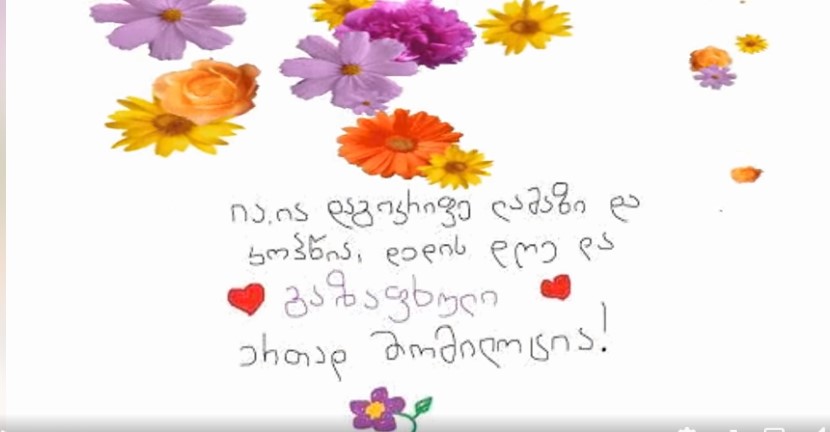 ია,ია დაგიკრიფე ლამაზი და
კოპწია, დედის დღე და
გაზაფხული
ერთად მომილოცია!